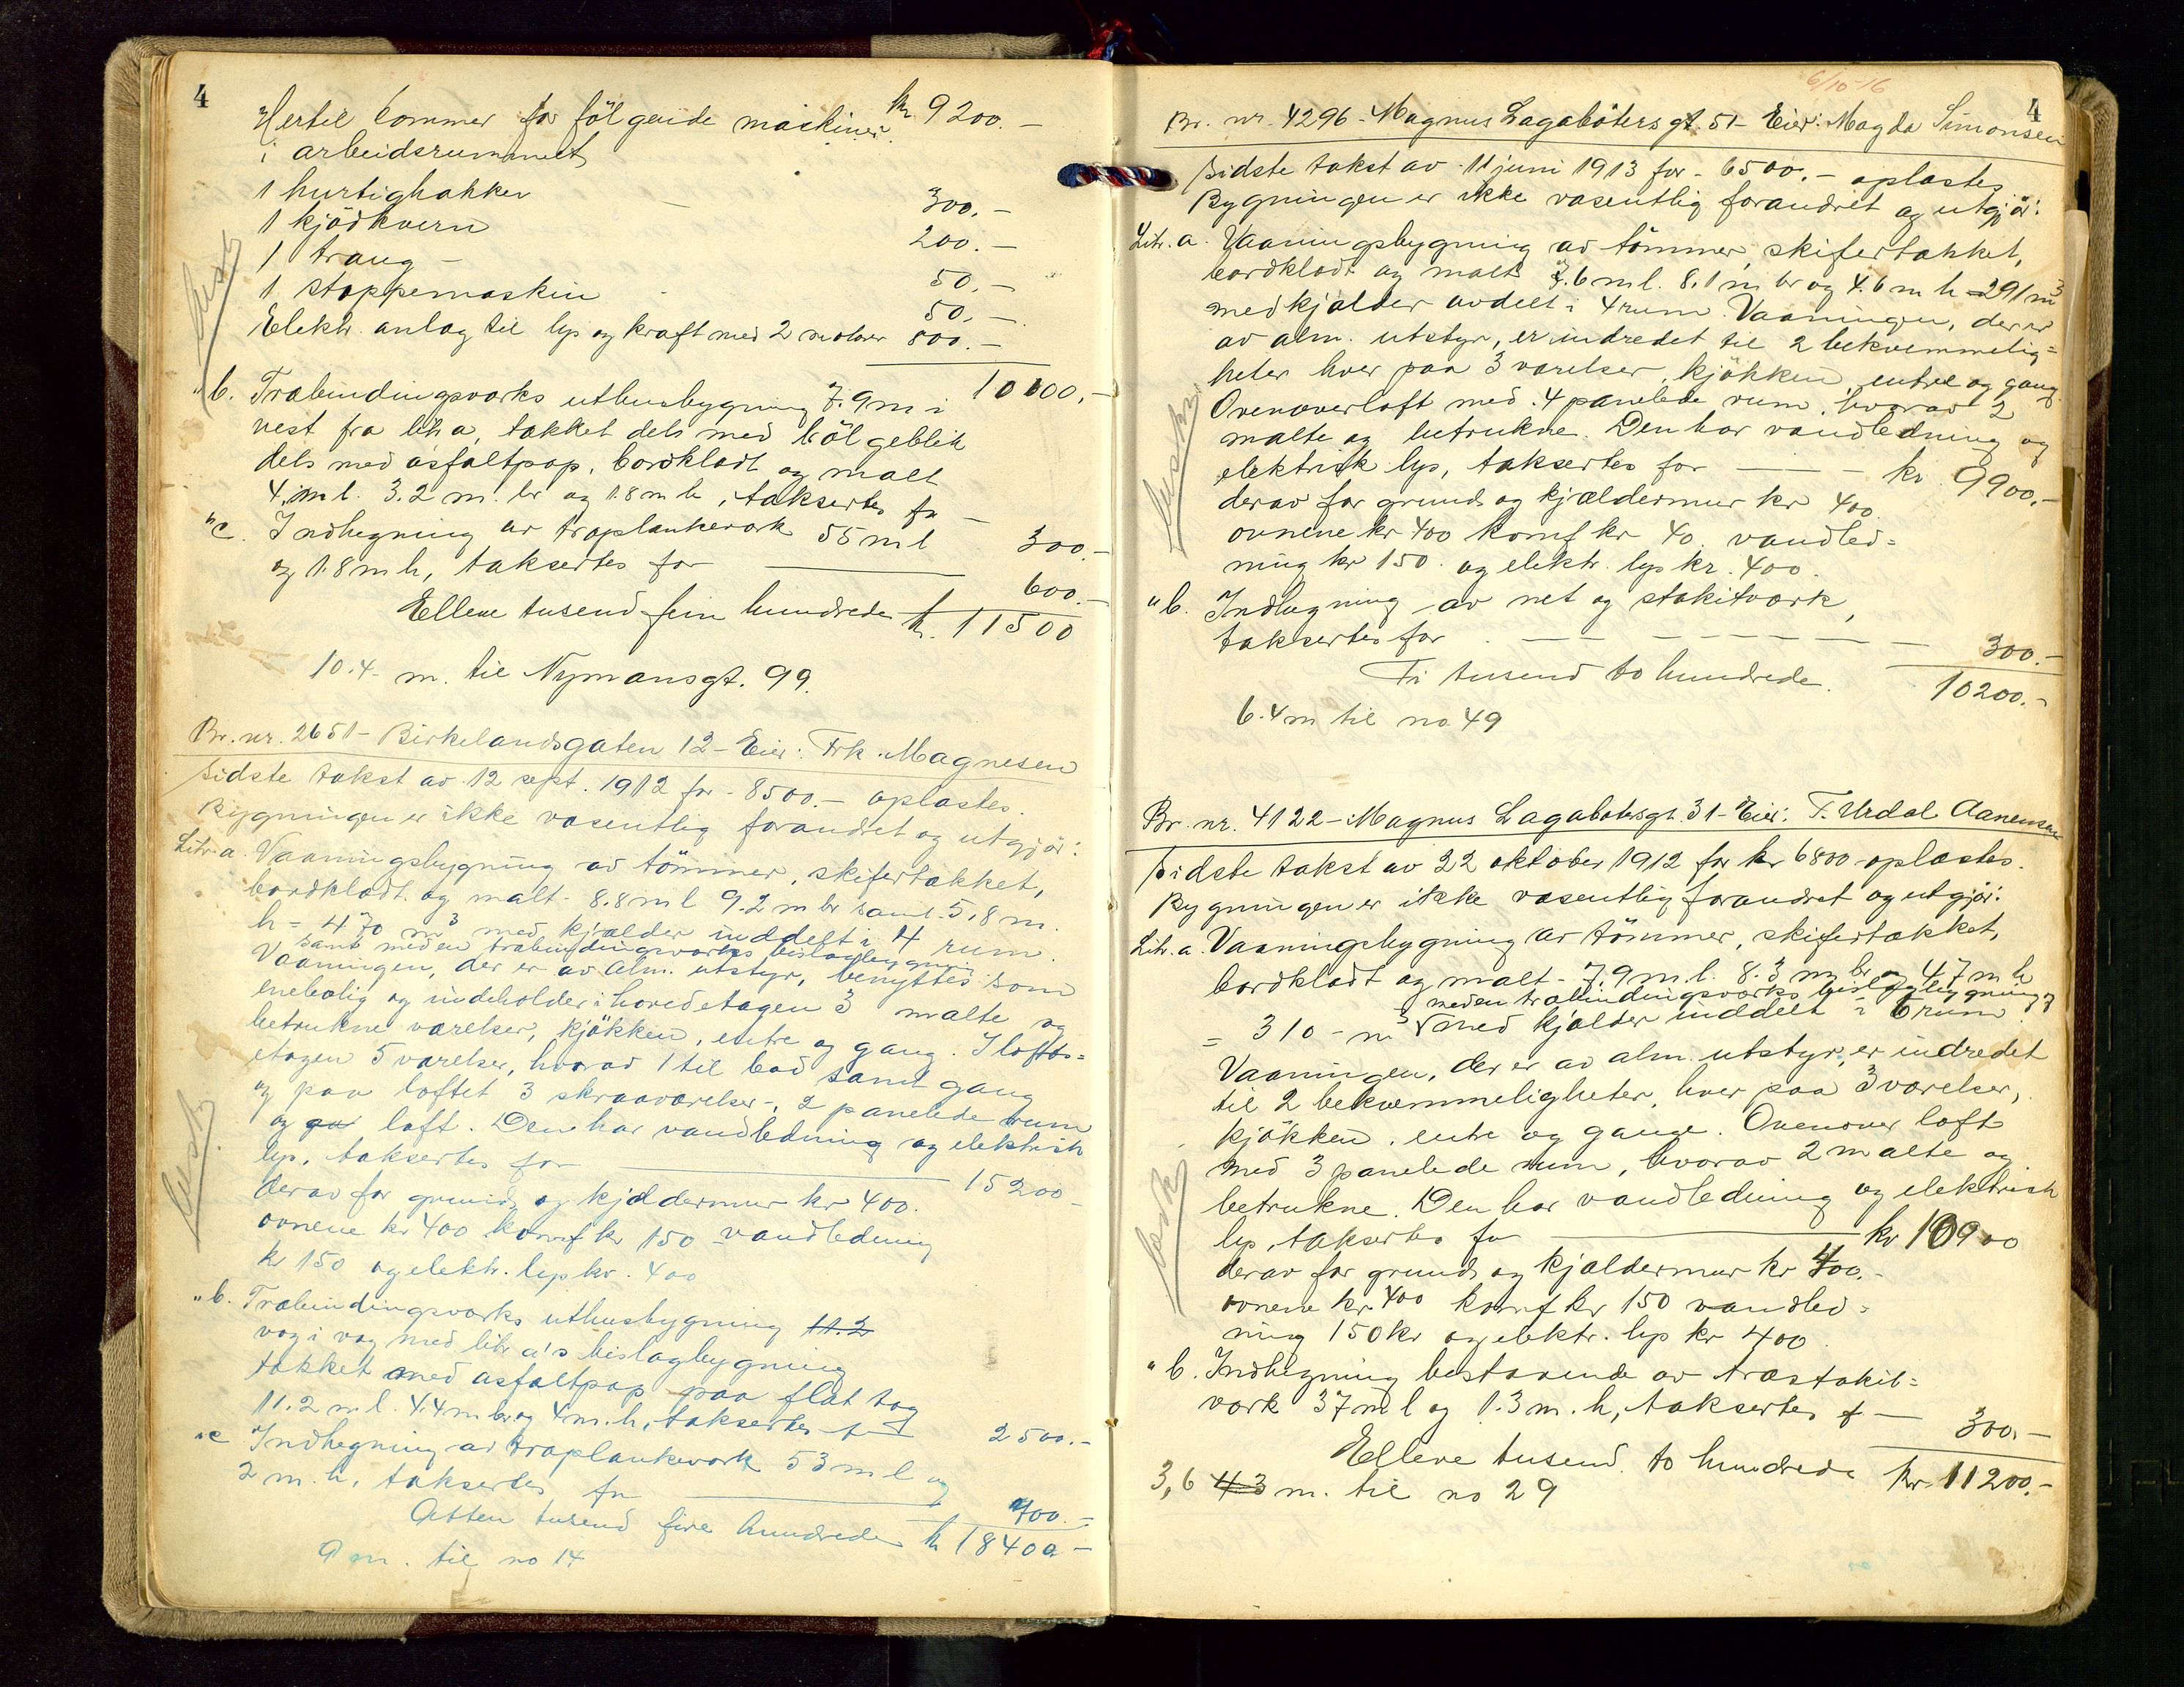 4
kr. 9200.-
Hertil kommer for følgende maskiner
i arbeidsrummet
1 hurtighakker 300.-
1 kjødkvern 200.-
1 traug - 50.-
1 stoppemaskin 50.-
Elektr. anlæg til lys og kraft med 2 motorer 800.-
10600.-
"b. Træbindingsværks uthusbygning 7.9 m i
vest fra litr a, tækket dels med bölgeblik
dels med asfaltpap, bordklædt og malt
4. m l. 3.2 m. br og 1.8 m h, taksertes for - 300.-
"c. Indhegning av træplankeverk 55 m l
og 1.8 m h, taksertes for 600.-
Elleve tusend fem hundrede kr. 11500
10.4 m. til Nymansgt. 99.
Br. nr. 2651 - Birkelandsgaten 12 - Eier: Frk. Magnesen
Sidste takst av 12 sept. 1912 for - 8500.- oplæstes.
Bygningen er ikke væsentlig forandret og utgjør:
Litr. a. Vaaningsbygning av tömmer, skifertækket,
bordklædt og malt - 8.8 m l 9.2 m br samt 5,8 m.
h = 470 m³ med kjælder inddelt i 4 rum.
samt med en træbindingsværks bislagbygning
Vaaningen, der er av alm. utstyr, benyttes som
enebolig og indeholder i hovedetagen 3 malte og
betrukne værelser, kjøkken, entre og gang. I lofts=
etagen 5 værelser, hvorav 1 til bad samt gang
og paa loftet 3 skraaværelser, 2 panelede rum
og loft. Den har vandledning og elektrisk
lys, taksertes for 15200-
derav for grund og kjældermur kr 400.
ovnene kr 400 komf kr 150 vandledning
kr 150 og elektr. lys kr. 400
"b. Træbindingsværks uthusbygning 11.2
væg i væg med litr a's bislagbygning
tækket med asfaltpap paa flat tag
11.2 m l. 4.4 m br og 4 m. h, taksertes f 2500.-
"c Indhegning av træplankeværk 53 m l og
2 m. h. taksertes for 700.-
Atten tusend fire hundrede kr 18400-
9 m. til no 14
6/10-16
4
Br. nr. 4296 - Magnus Lagabøters gt. 51 - Eier: Magda Simonsen
Sidste takst av 11 juni 1913 for - 6500.- oplæstes
Bygningen er ikke væsentlig forandret og utgjør:
Litr. a. Vaaningsbygning av tömmer, skifertækket,
bordklædt og malt 7.6 m l. 8.1 m br og 4.6 m h = 291 m³
med kjælder avdelt i 4 rum. Vaaningen, der er
av alm. utstyr, er indredet til 2 bekvemmelig=
heter hver paa 3 værelser, kjøkken, entre og gang.
Ovenover loft med 4 panelede rum, hvorav 2
malte og betrukne. Den har vandledning og
elektrisk lys, taksertes for - kr. 9900.-
derav for grund og kjældermur kr 400.
ovnene kr 400 komf kr 40. vandled=
ning kr 150. og elektr. lys kr. 400.
"b. Indhegning av net og stakitværk,
taksertes for 300.-
Ti tusend to hundrede. 10200.-
6.4 m til no 49
Br. nr. 4122 - Magnus Lagabøtersgt. 31 - Eier: T. Urdal Aanensen
Sidste takst av 22 oktober 1912 for kr 6800 oplæstes.
Bygningen er ikke væsentlig forandret og utgjør:
Litr. a. Vaaningsbygning av tömmer, skifertækket,
bordklædt og malt - 7.9 m. l. 8.3 m br og 4.7 m h
med en træbindingsværks bislagbygning og
= 310 - m³ med kjælder inddelt i 6 rum
Vaaningen, der er av alm. utstyr, er indredet
til 2 bekvemmeligheter, hver paa 3 værelser,
kjøkken, entre og gange. Ovenover loft
med 3 panelede rum, hvorav 2 malte og
betrukne. Den har vandledning og elektrisk
lys, taksertes for kr 10900
derav for grund og kjældermur kr 400.-
ovnene kr 400 komf kr 150 vandled=
ning 150 kr og elektr. lys kr 400
"b. Indhegning bestaaende av træstakit=
værk 37 m l og 1.3 m. h, taksertes f - 300.-
Elleve tusend to hundrede kr. 11200.-
3,6 4.3 m. til no 29